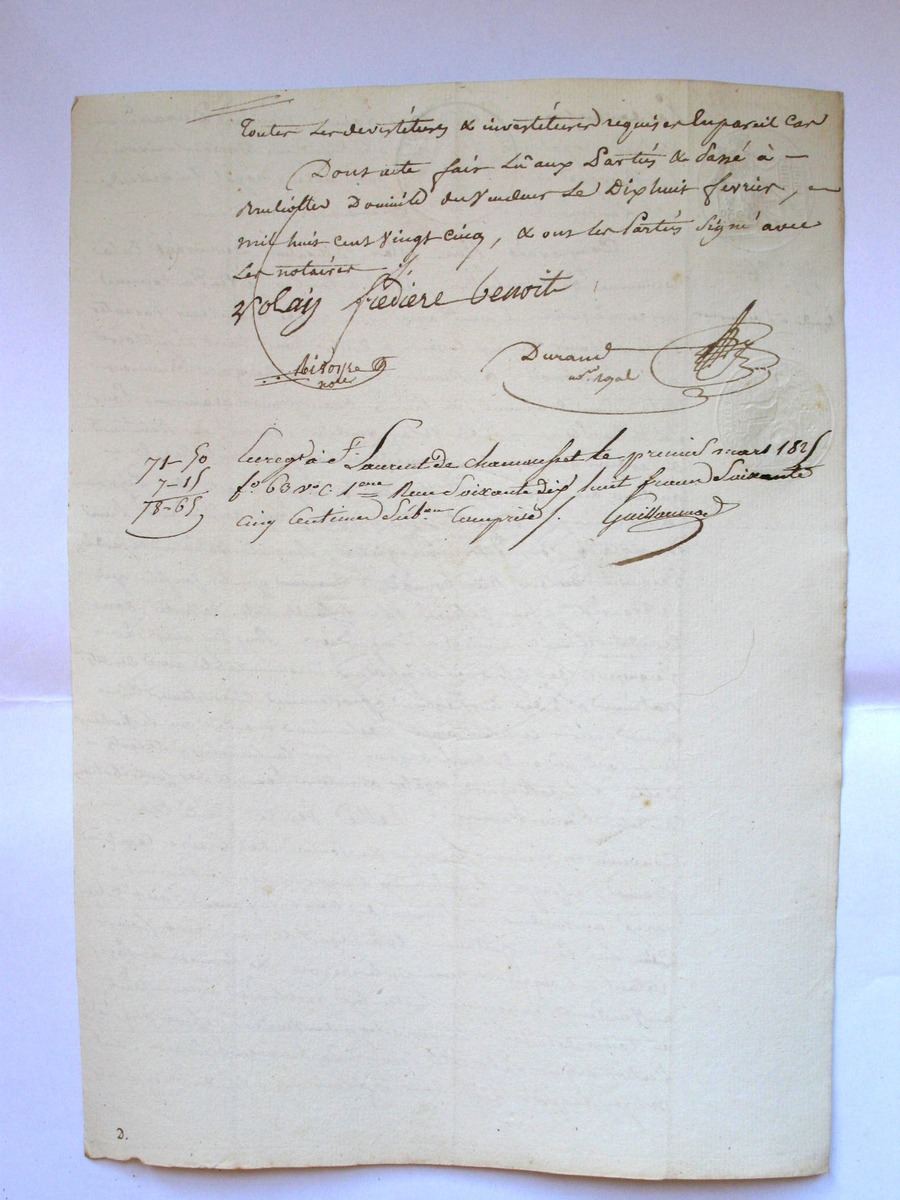 Toutes les devestitures & investitures requises En pareil Cas
Dont acte fait Lû aux Parties & Passé à —
Domicile du Vendeur Le Dix huit fevrier, an
mil huit cent Vingt Cinq, & ont les Parties Signé avec
Les notaires ./.
benoit
Durand
nore. royal
notre
71-50
7-15
78-65
Enregé. à St. Laurent de chamousset le premier mars 1825
fo. 63 vo. C. 1ere Reçu Soixante dix huit francs Soixante
cinq Centimes Sub.on Compris ./. Guillaumod
D.